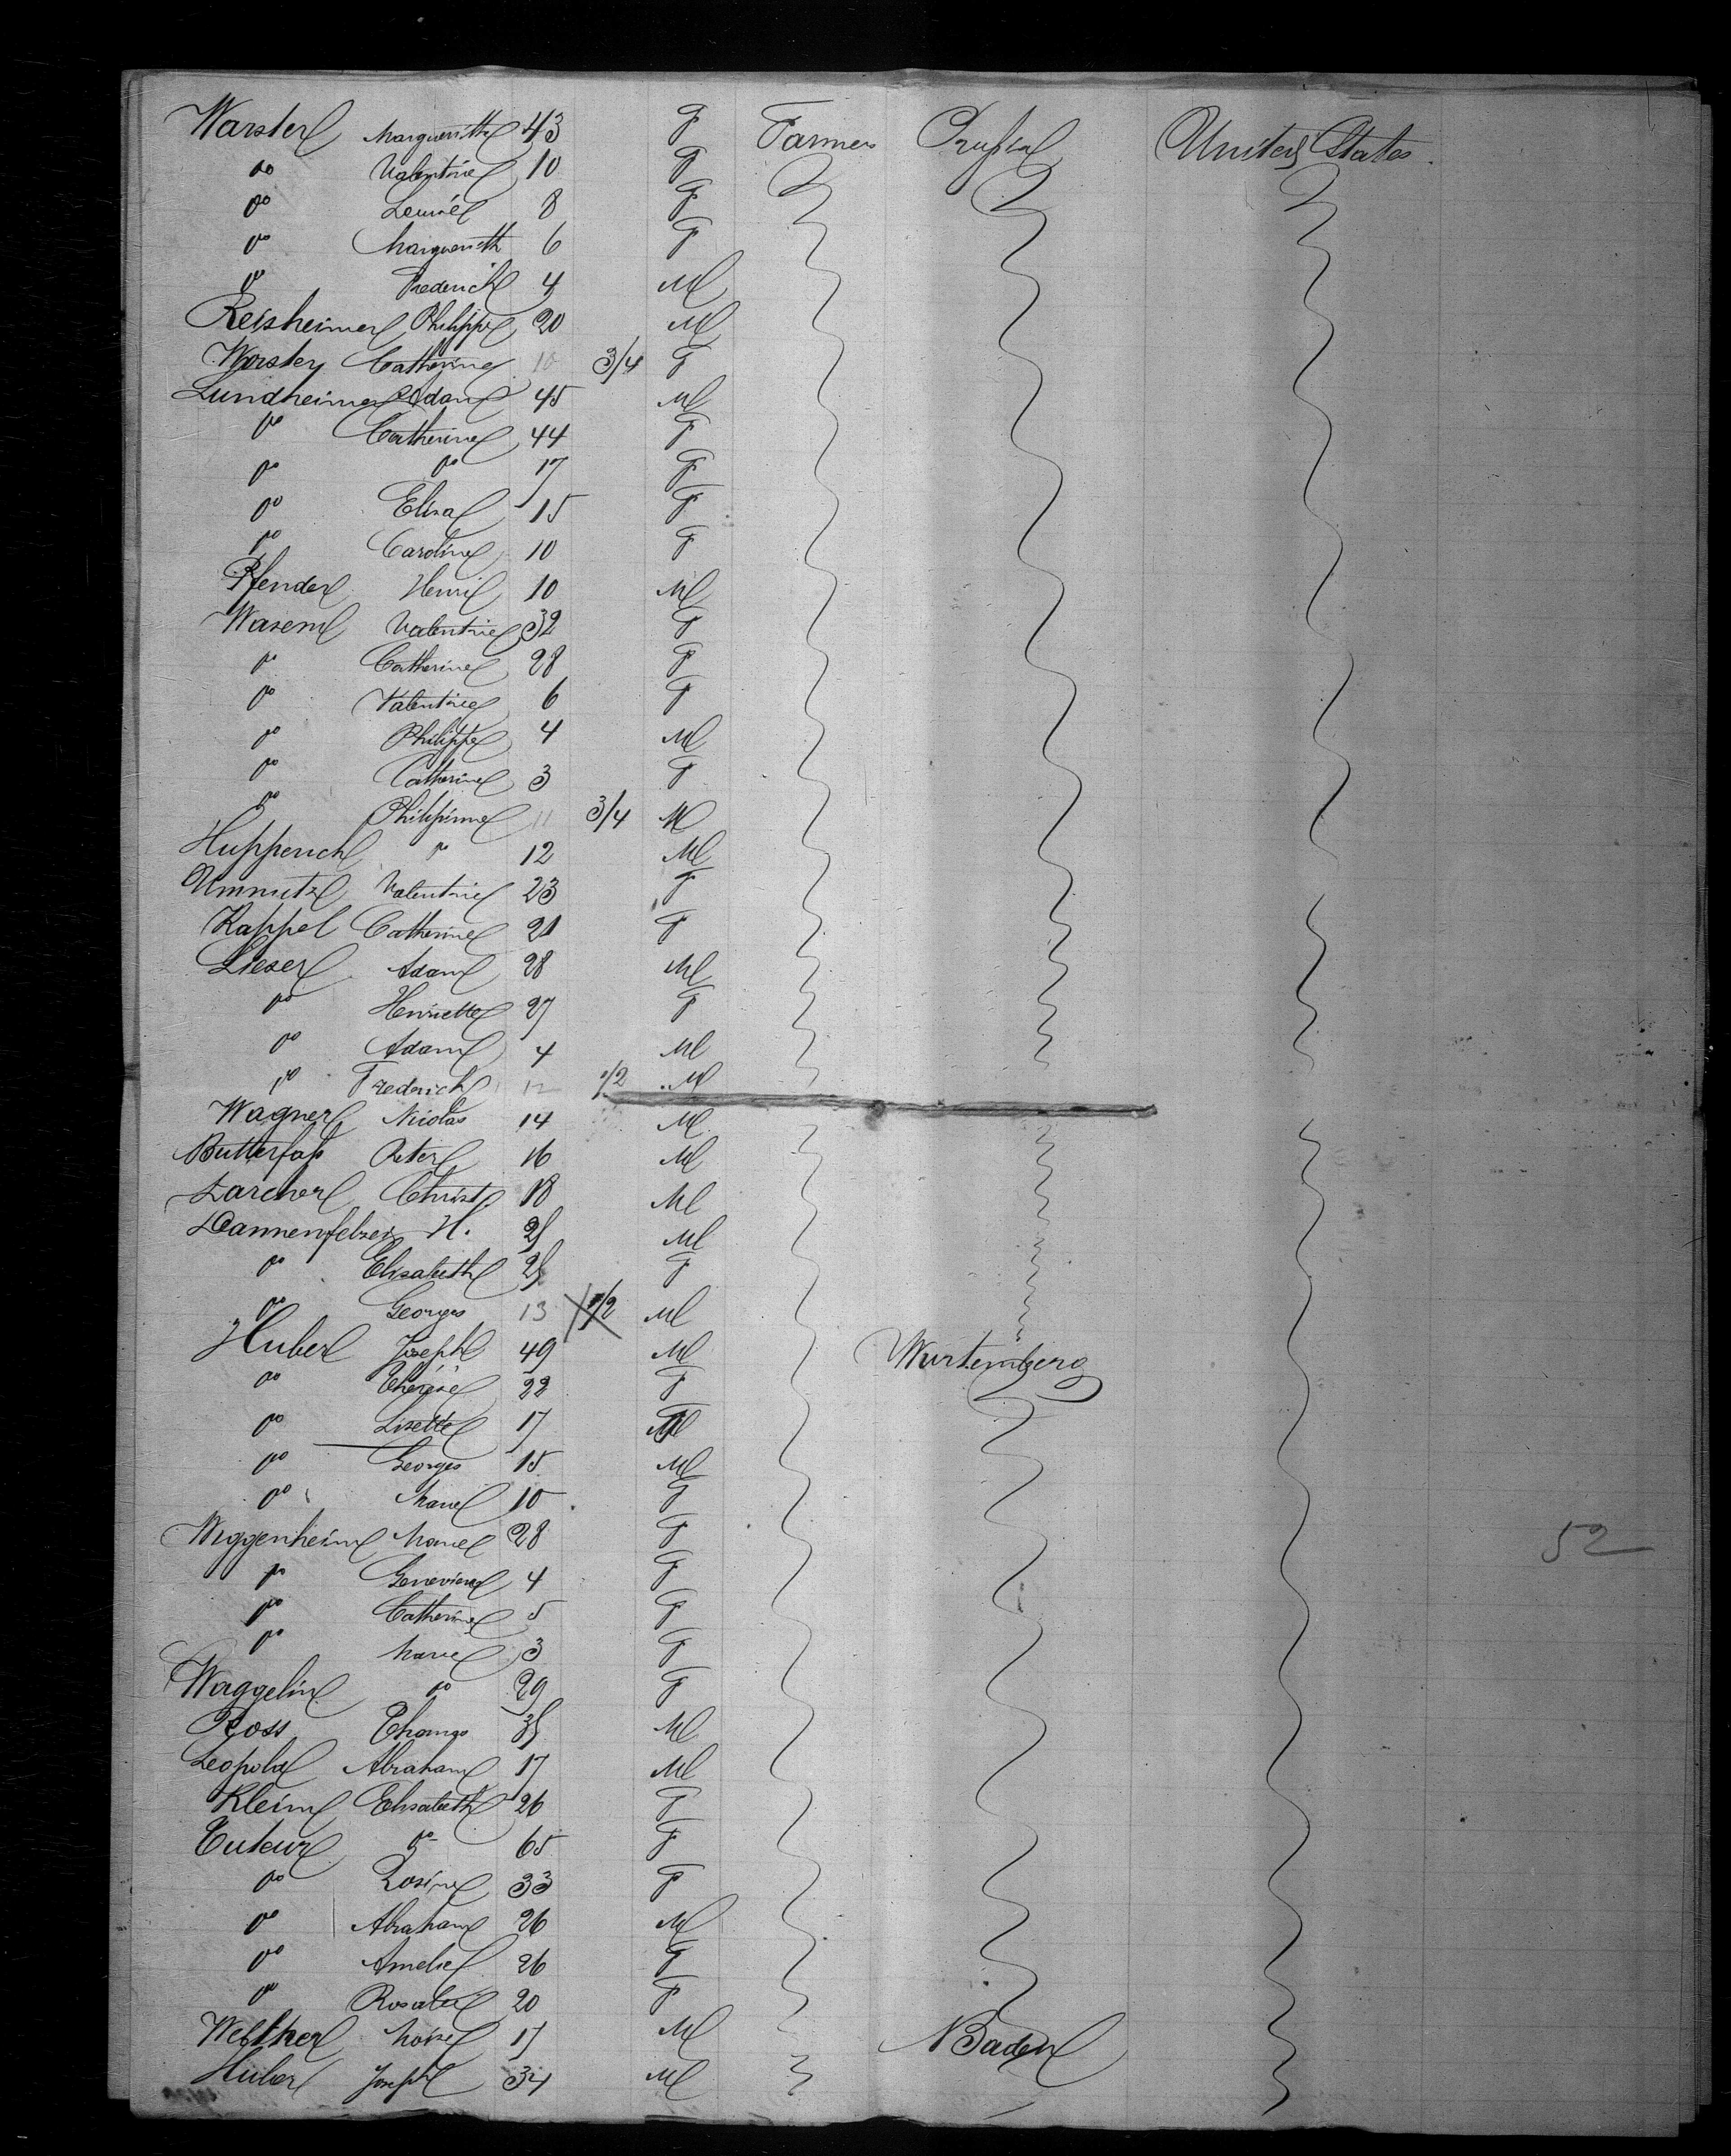 Warster Margueritte 43 F Farmer Prussia United States.
do Valentine 10 F
do Louise 8 F
do Margueritt 6 F
do Frederick 4 M
Reisheimer Philippe 20 M
Worster Catherine 10 3/4 F
Lundheimer Adam 45 M
do Catherine 44 F
do do 17 F
do Elisa 15 F
do Caroline 10 F
Pfender Henri 10 M
Wasem Valentine 32 F
do Catherine 28 F
do Valentine 6 F
do Philippe 4 M
do Catherine 3 F
do Philippine 11 3/4 M
Hupperich do 12 M
Ummutz Valentine 23 F
Kappel Catherine 21 F
Lieser Adam 28 M
do Henriette 27 F
do Adam 4 M
do Frederick 1/2 M
Wagner Nicolas 14 M
Butterfass Peter 16 M
Larcher Christ. 18 M
Dannenfelser H. 25 M
do Elisabeth 25 F
do Georges 13 1/2 M
Huber Joseph 49 M Wurtemberg
do Therese 22 F
do Lisette 17
do Georges 15 M
do Marie 10 F
Wiggenheim Marie 28 F
52
do Genevieve 4 F
do Catherine 5 F
do Marie 3 F
Waggelin do 29 F
Ross Thomas 35 M
Leopold Abraham 17 M
Klein Elisabeth 26 F
Tuteur do 65 F
do Rosine 33 F
do Abraham 26 M
do Amelie 26 F
do Rosalie 20 F
Welther Moise 17 M Baden
Huber Joseph 34 M